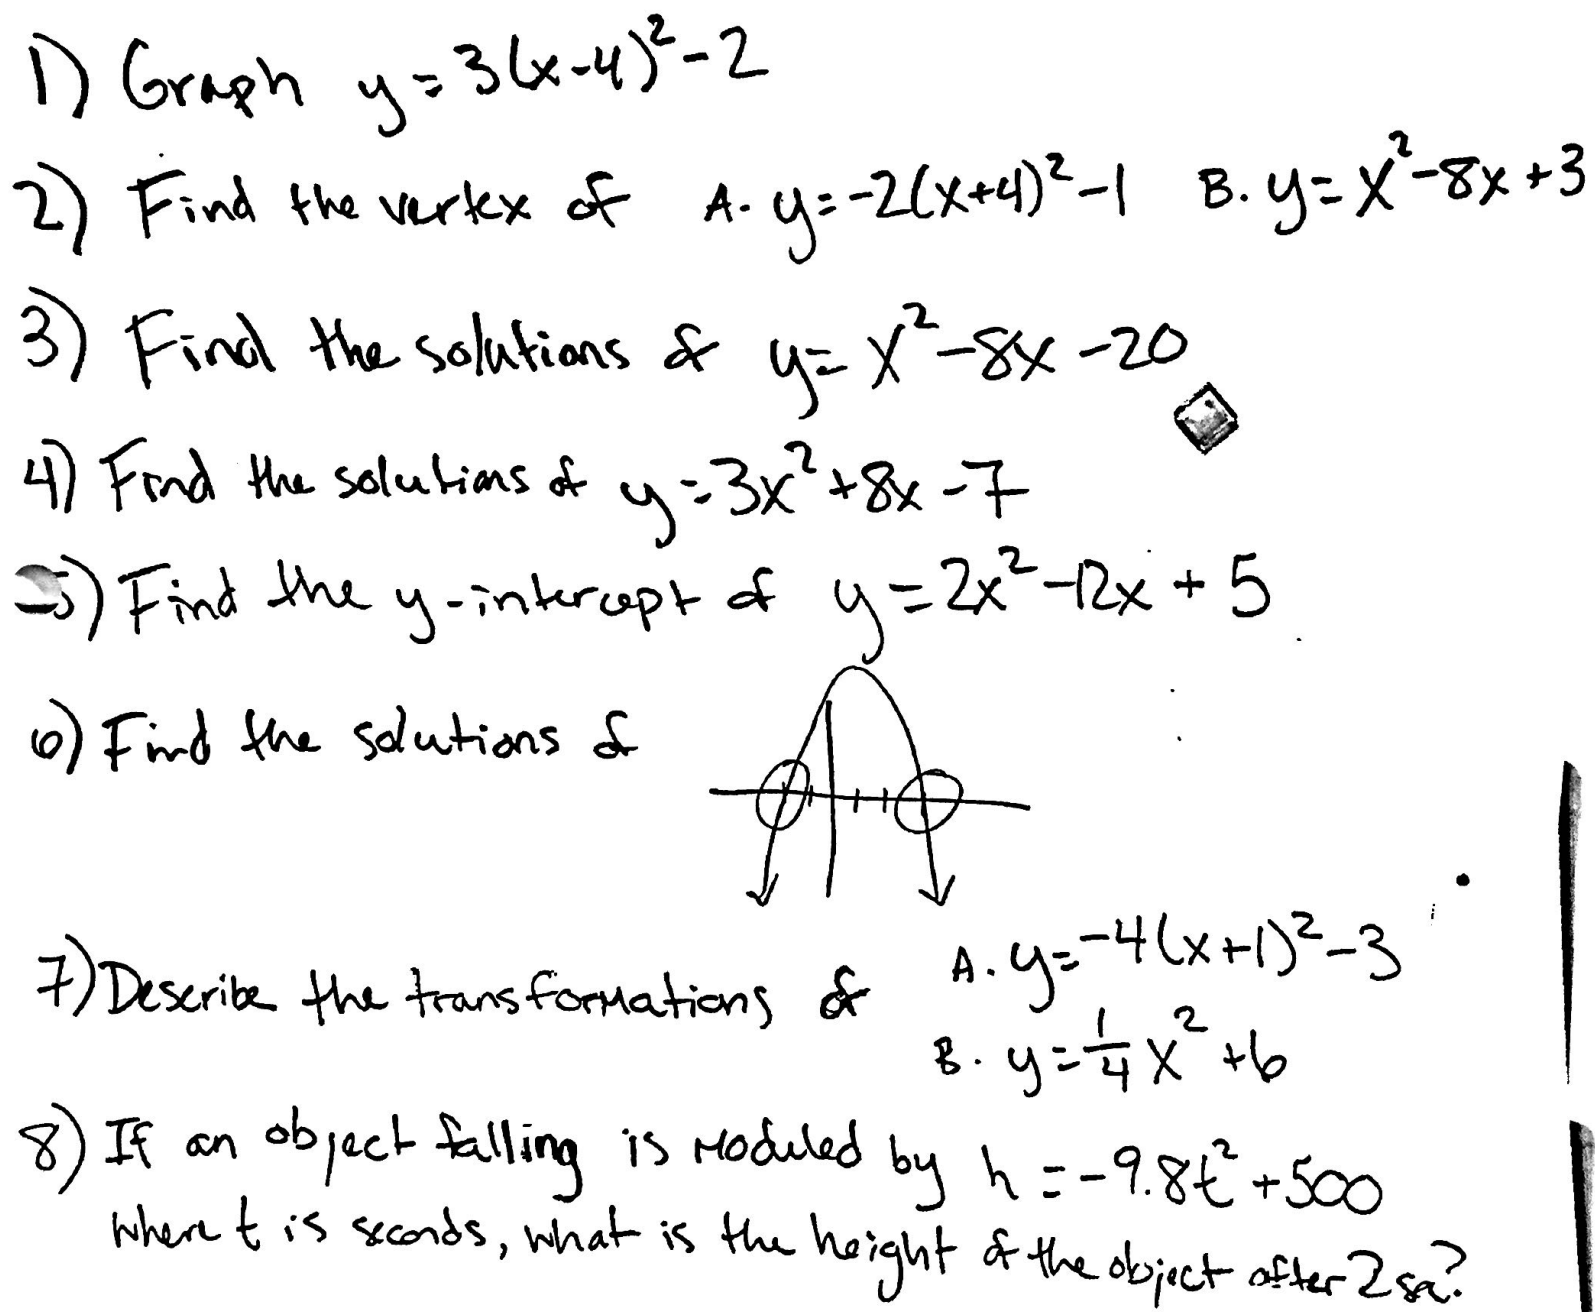 1) Graph y = 3(x-4)²-2
2) Find the vertex of A. y=-2(x+4)²-1 B. y=x²-8x+3
3) Find the solutions of y=x²-8x-20
4) Find the solutions of y=3x²+8x-7
5) Find the y-intercept of y=2x²-12x+5
6) Find the solutions of
7) Describe the transformations of A. y=-4(x+1)²-3
B. y=1/4x²+6
8) If an object falling is moduled by h=-9.8t²+500
where t is seconds, what is the height of the object after 2 sec?